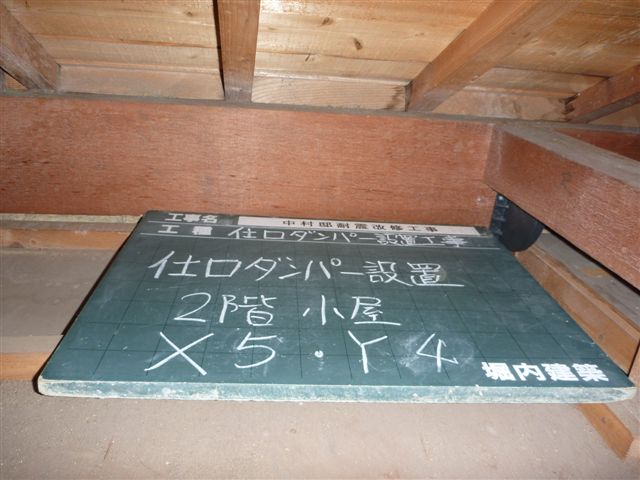 工事名 中村邸耐震改修工事
工種 仕口ダンパー設置工事
仕口ダンパー設置
2階 小屋
X5・Y4
堀内建築